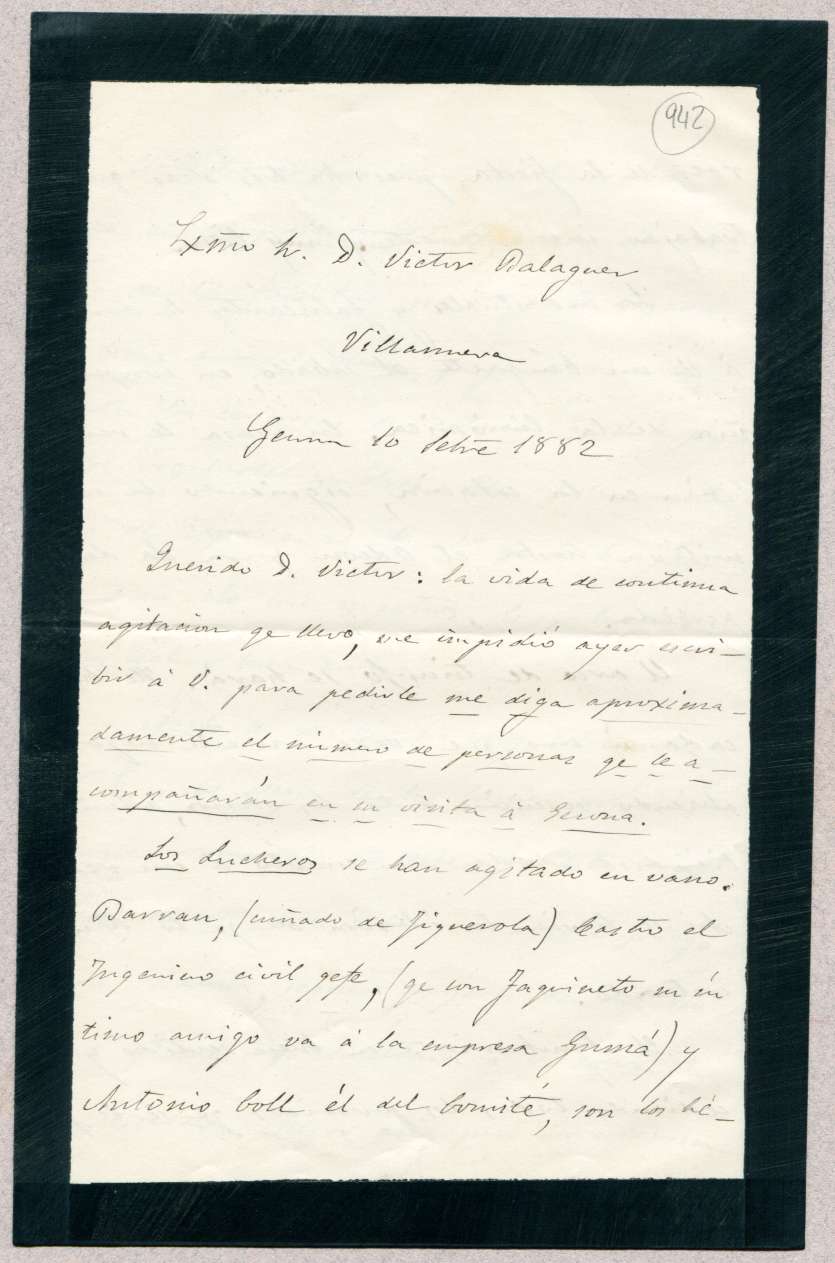 942
Exmo Sr. D. Victor Balaguer
Villanueva
Gerona 10 Setre 1882
Querido D. Victor: la vida de continua
agitacion qe llevo, me impidió ayer escri-
bir á V. para pedirle me diga aproxima-
damente el número de personas qe le a-
compañarán en su visita á Gerona.
Los Lucheros se han agitado en vano.
Barrau, (cuñado de Figuerola) Castro el
Ingeniero civil gefe, (qe con Jaquineto su ín
timo amigo va á la empresa Gumá) y
Antonio Coll él del Comité, son los hé-